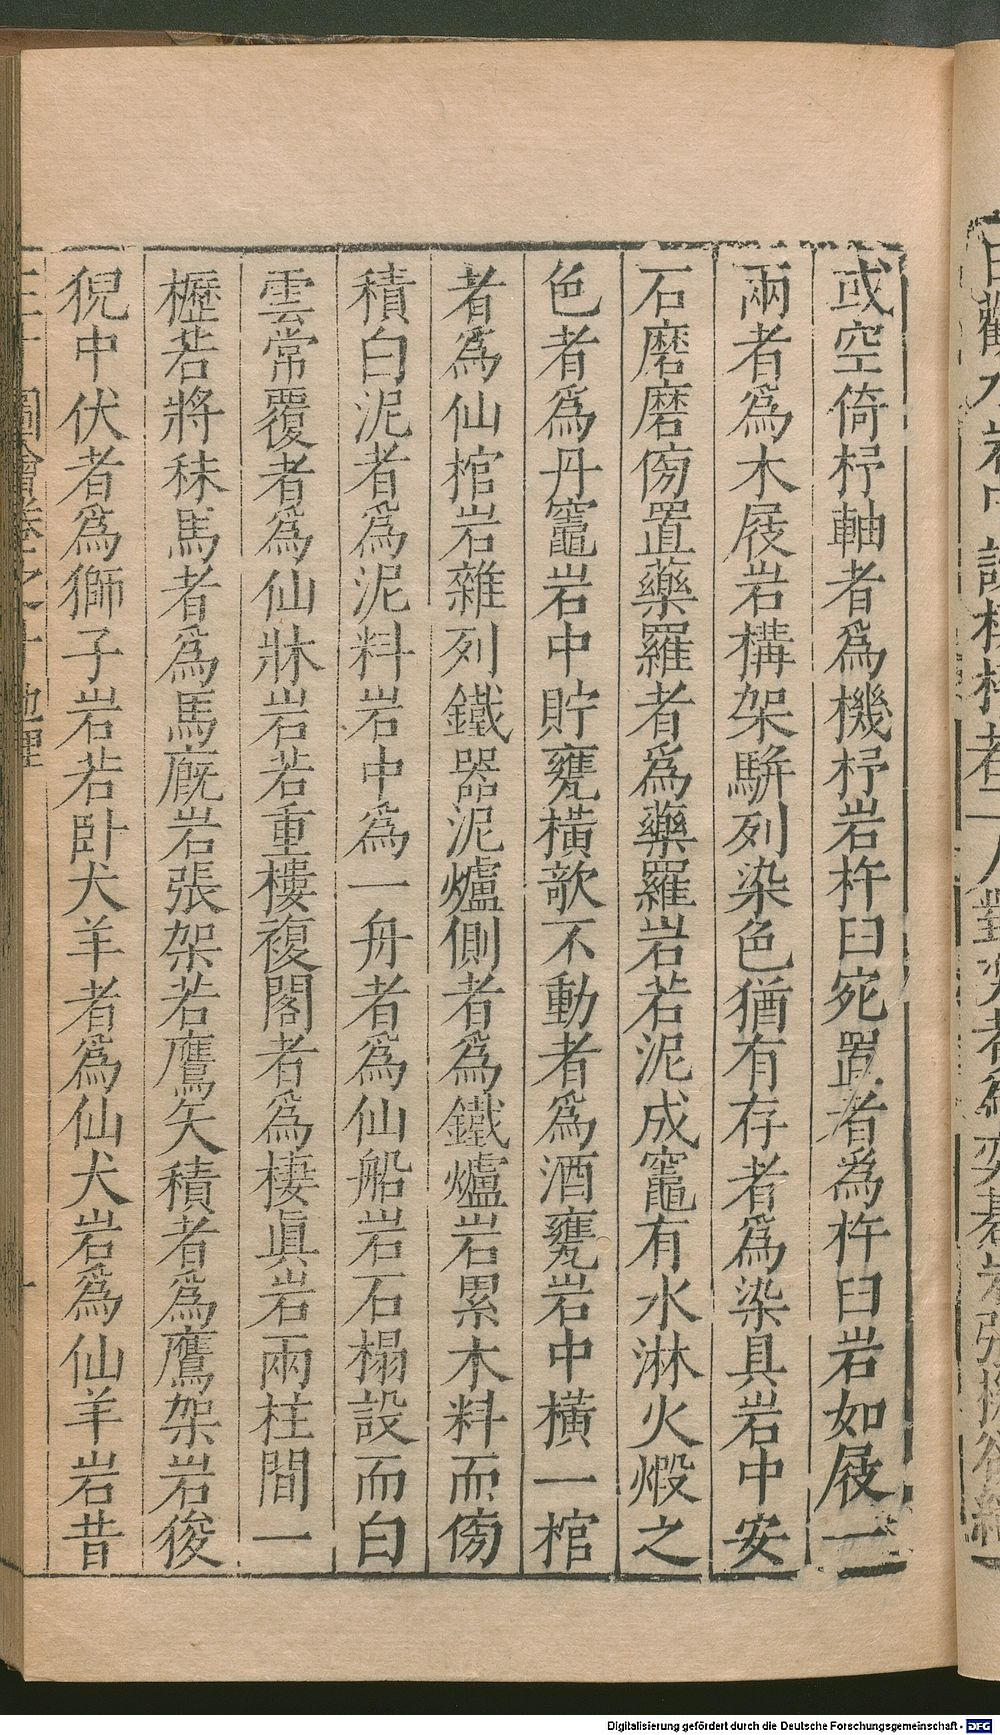 或空倚杼軸者爲機杼岩杵臼宛置者爲杵臼岩如屐一
兩者爲木屐岩構架駢列染色猶有存者爲染具岩中安
石磨磨傍置藥羅者爲藥羅岩若泥成竈有水淋火煅之
色者爲丹竈岩中貯甕橫欹不動者爲酒甕岩中橫一棺
者爲仙棺岩雜列鐵器泥爐側者爲鐵爐岩累木料而傍
積白泥者爲泥料岩中爲一舟者爲仙船岩石榻設而白
雲常覆者爲仙牀岩若重樓複閣者爲棲眞岩兩柱間一
櫪若將秣馬者爲馬廐岩張架若鷹矢積者爲鷹架岩狻
猊中伏者爲獅子岩若卧犬羊者爲仙犬岩爲仙羊岩昔
圖會卷之十 地理
Digitalisierung gefördert durch die Deutsche Forschungsgemeinschaft - DFG